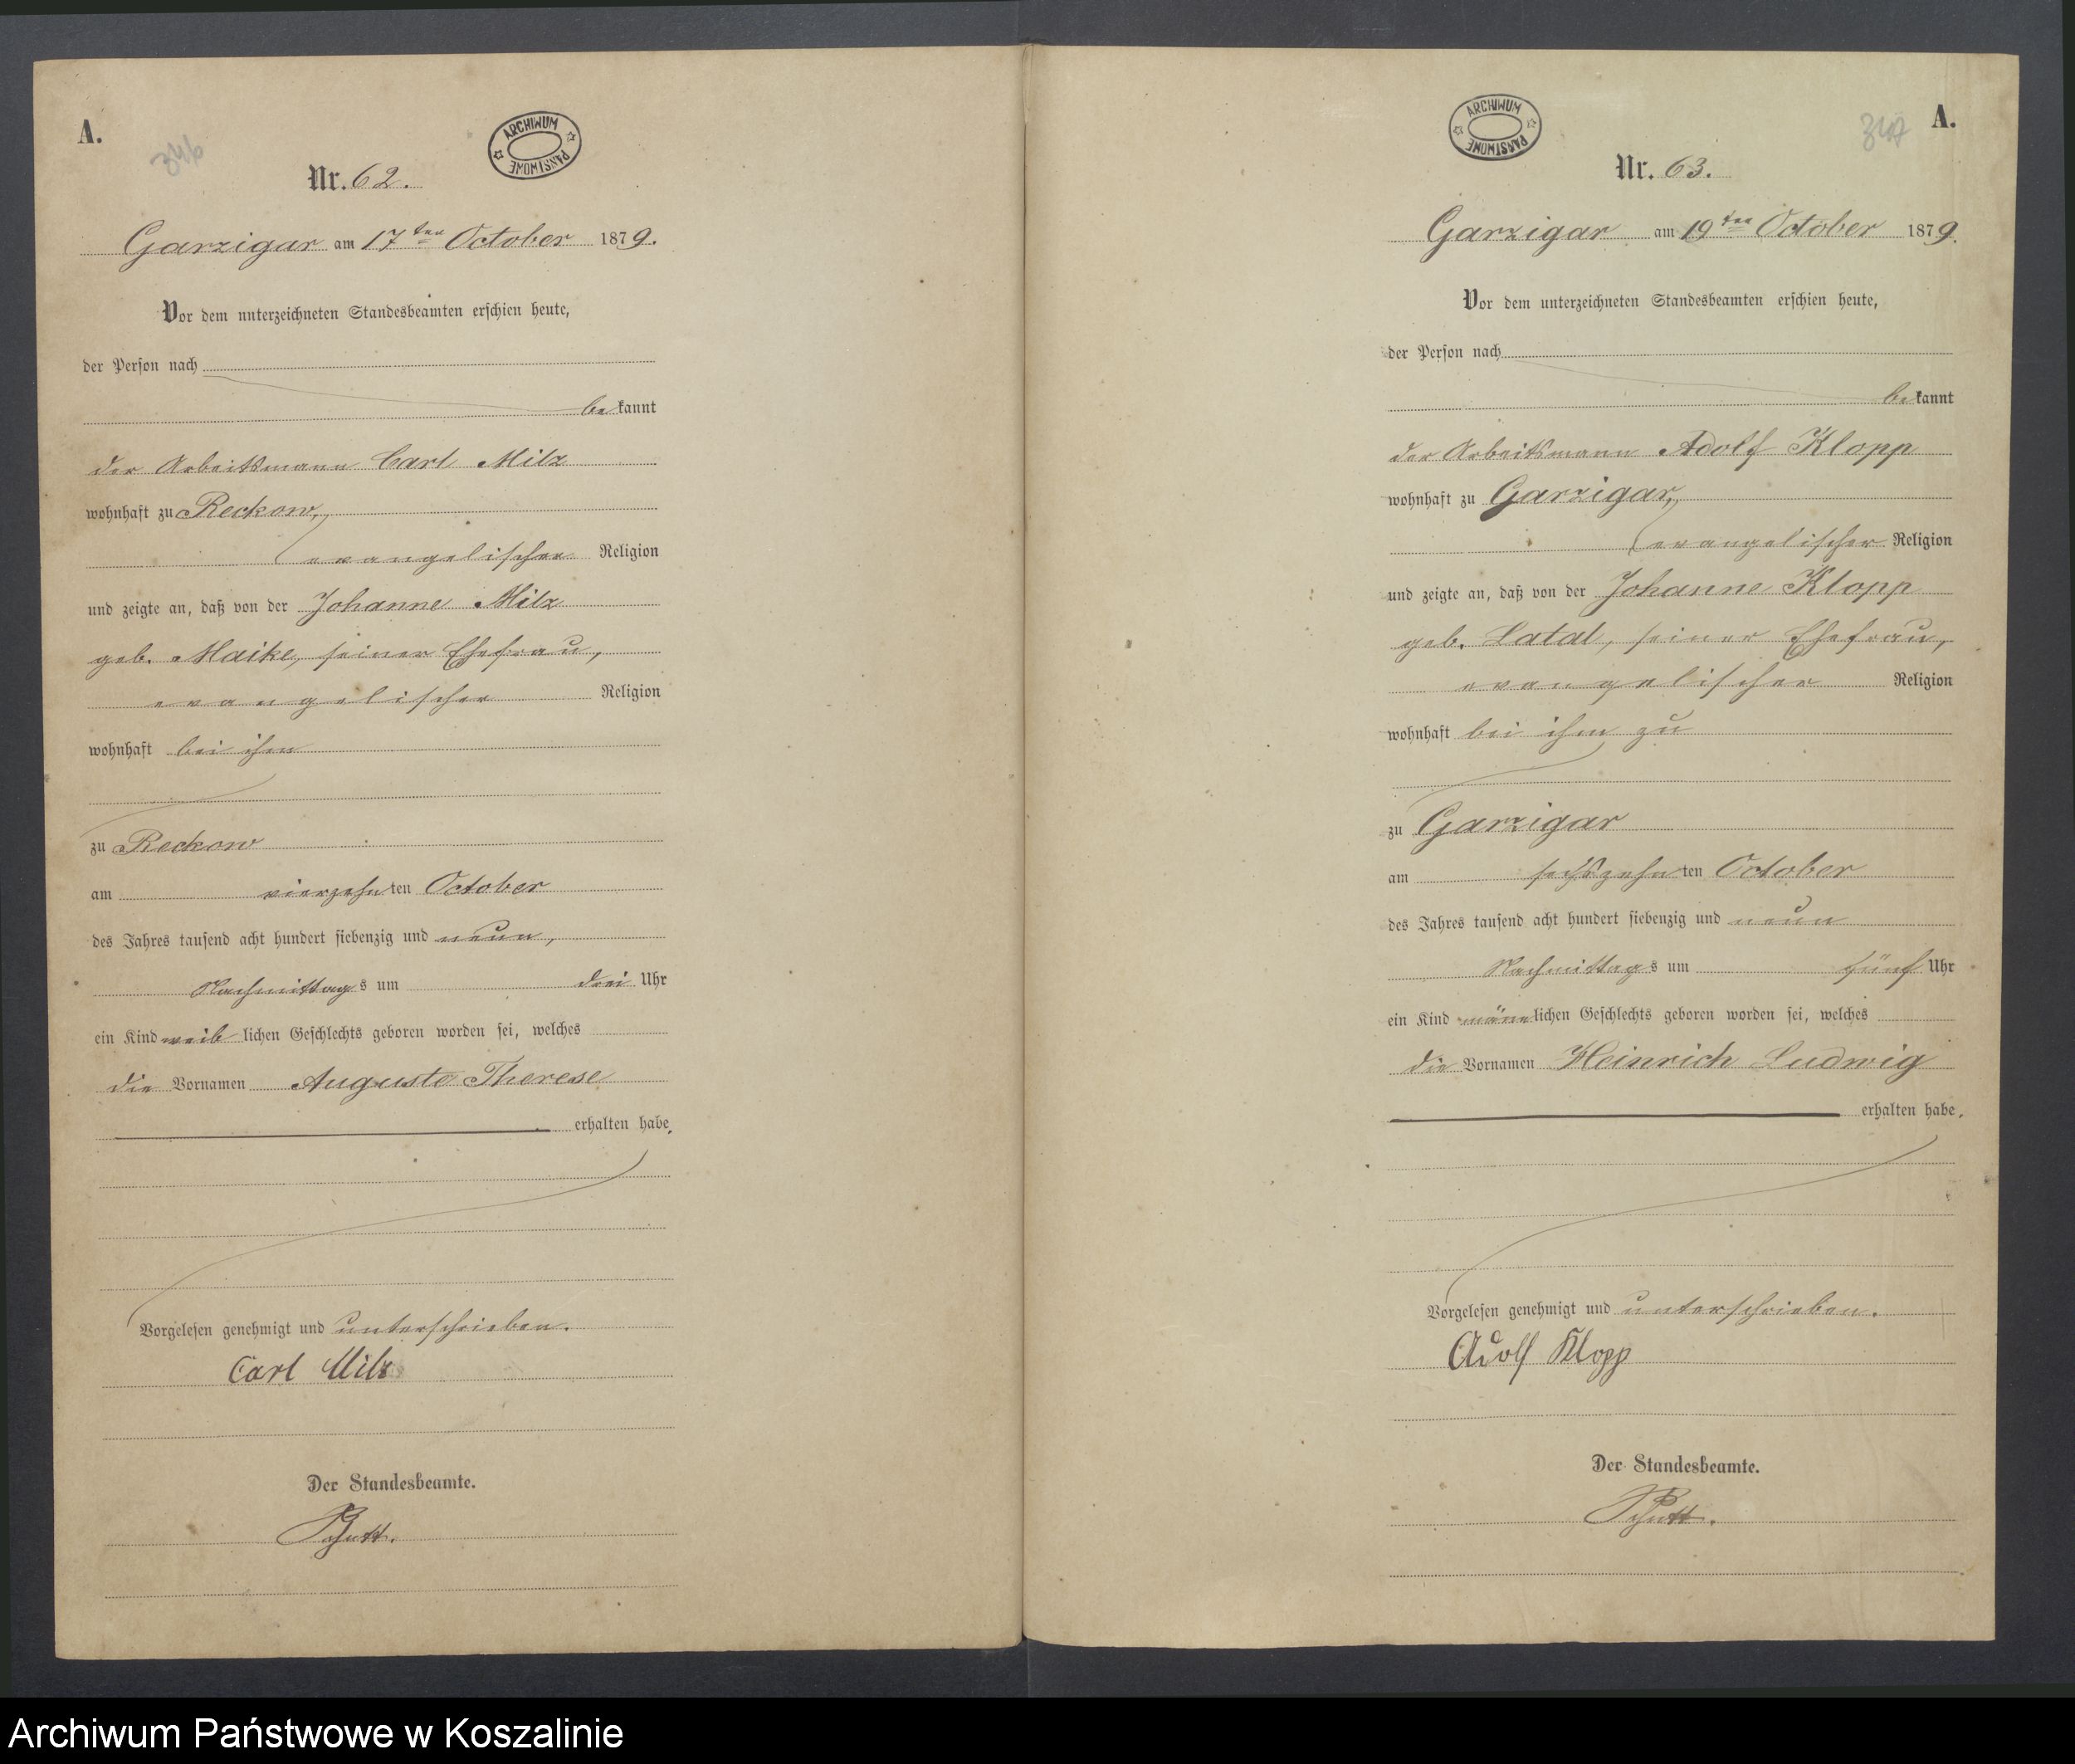 A.
346
ARCHIWUM PAŃSTWOWE
Nr. 62.
Garzigar am 17ten October 1879.
Vor dem unterzeichneten Standesbeamten erschien heute,
der Person nach
bekannt
der Arbeitsmann Carl Milz
wohnhaft zu Reckow,
evangelischer Religion
und zeigte an, daß von der Johanne Milz
geb. Maike, seiner Ehefrau,
evangelischer Religion
wohnhaft bei ihm
zu Reckow
am vierzehnten October
des Jahres tausend acht hundert siebenzig und neun,
Nachmittags um drei Uhr
ein Kind weiblichen Geschlechts geboren worden sei, welches
die Vornamen Auguste Therese
erhalten habe.
Vorgelesen genehmigt und unterschrieben.
Carl Milz
Der Standesbeamte.
ARCHIWUM PAŃSTWOWE
347
A.
Nr. 63.
Garzigar am 19ten October 1879.
Vor dem unterzeichneten Standesbeamten erschien heute,
der Person nach
bekannt
der Arbeitsmann Adolf Klopp
wohnhaft zu Garzigar,
evangelischer Religion
und zeigte an, daß von der Johanne Klopp
geb. Latal, seiner Ehefrau,
evangelischer Religion
wohnhaft bei ihm zu
zu Garzigar
am sechszehnten October
des Jahres tausend acht hundert siebenzig und neun
Nachmittags um fünf Uhr
ein Kind männlichen Geschlechts geboren worden sei, welches
die Vornamen Heinrich Ludwig
erhalten habe.
Vorgelesen genehmigt und unterschrieben.
Adolf Klopp
Der Standesbeamte.
Archiwum Państwowe w Koszalinie